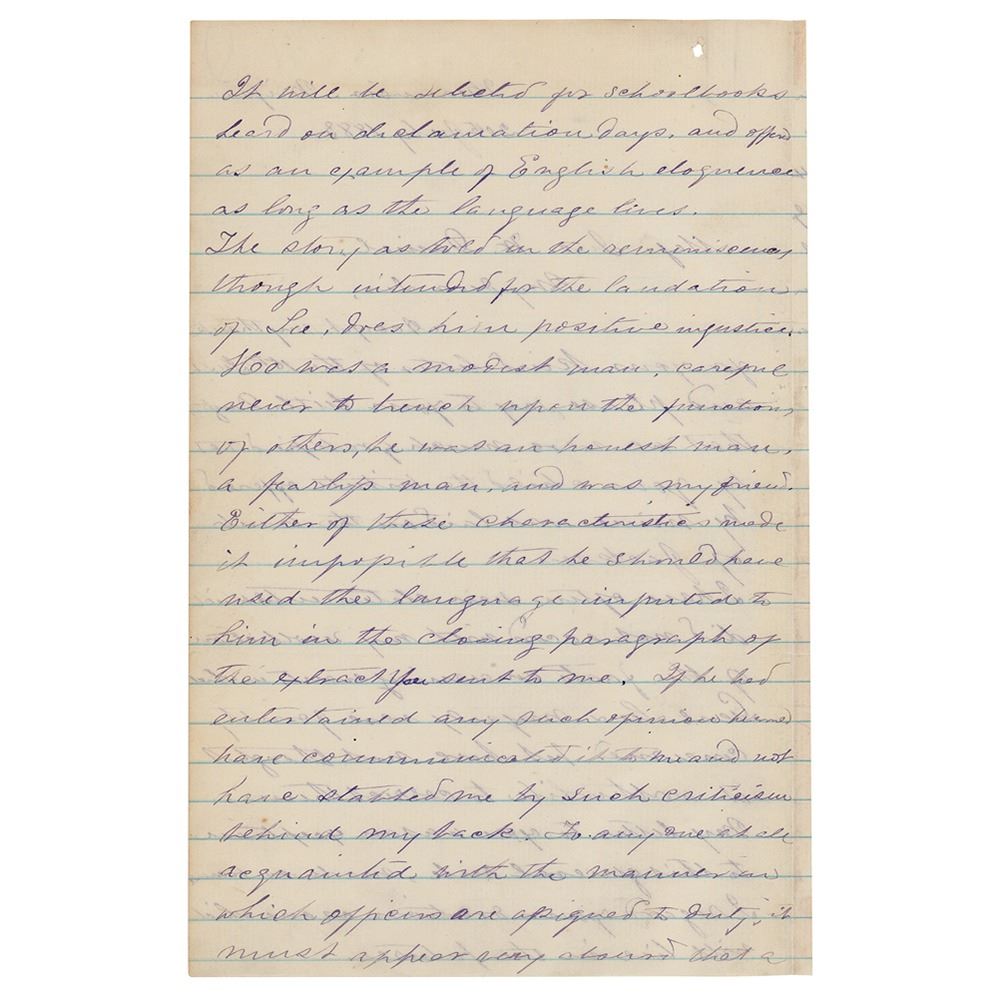 It will be selected for schoolbooks
heard on declamation days, and offered
as an example of English eloquence
as long as the language lives.
The story as told in the reminiscences
though intended for the laudation
of Lee, does him positive injustice.
He was a modest man, careful
never to trench upon the functions
of others, he was an honest man,
a fearless man, and was my friend.
Either of these characteristics made
it impossible that he should have
used the language imputed to
him in the closing paragraph of
the extract you sent to me. If he had
entertained any such opinion he would
have communicated it to me and not
have stabbed me by such criticism
behind my back. To any one at all
acquainted with the manner in
which officers are assigned to duty, it
must appear very absurd that a